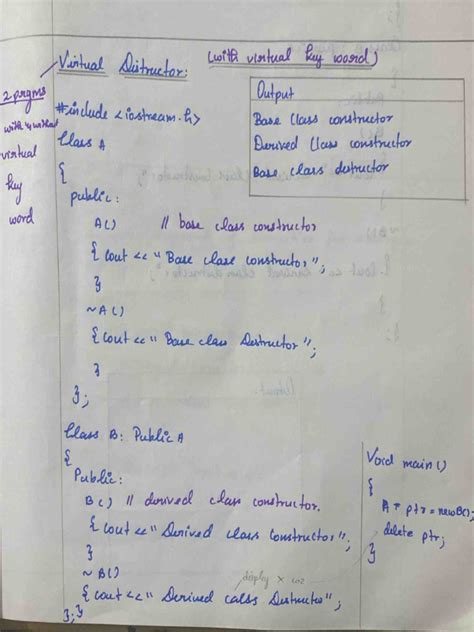 Virtual Distructor: (with virtual key word)
2 prgms
with & without
virtual
key
word
Output
Base Class constructor
Derived Class constructor
Base class destructor
#include <iostream.h>
Class A
{
public:
A() // base class constructor
{ Cout << "Base class constructor";
}
~A()
{ Cout << "Base class Destructor";
}
};
Class B: Public A
{
Public:
B() // derived class constructor.
{ Cout << "Derived class Constructor";
}
~B()
display x coz
{ Cout << "Derived calss Destructor";
};}
Void main()
{
A * ptr = new B();
delete ptr;
}